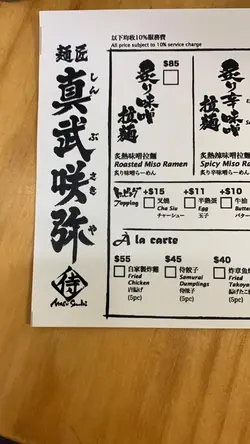 麺匠
真武咲弥
しんぶさきや
侍
以下均收10%服務費
All price subject to 10% service charge
$85
炙り味噌
拉麺
炙熱味噌拉麵
Roasted Miso Ramen
炙り味噌らーめん
炙り辛味噌
拉麺
炙熱辣味噌拉麵
Spicy Miso
炙り辛味噌らーめん
トッピング
Topping
+$15
叉燒
Cha Siu
チャーシュー
+$11
半熟蛋
Egg
玉子
+$10
牛油
Butter
バター
À la carte
$55
自家製炸雞
Fried
Chicken
(5pc)
$45
侍餃子
Samurai
Dumplings
侍餃子
(5pc)
$40
炸章魚
Fried
Takoya
(5pc)